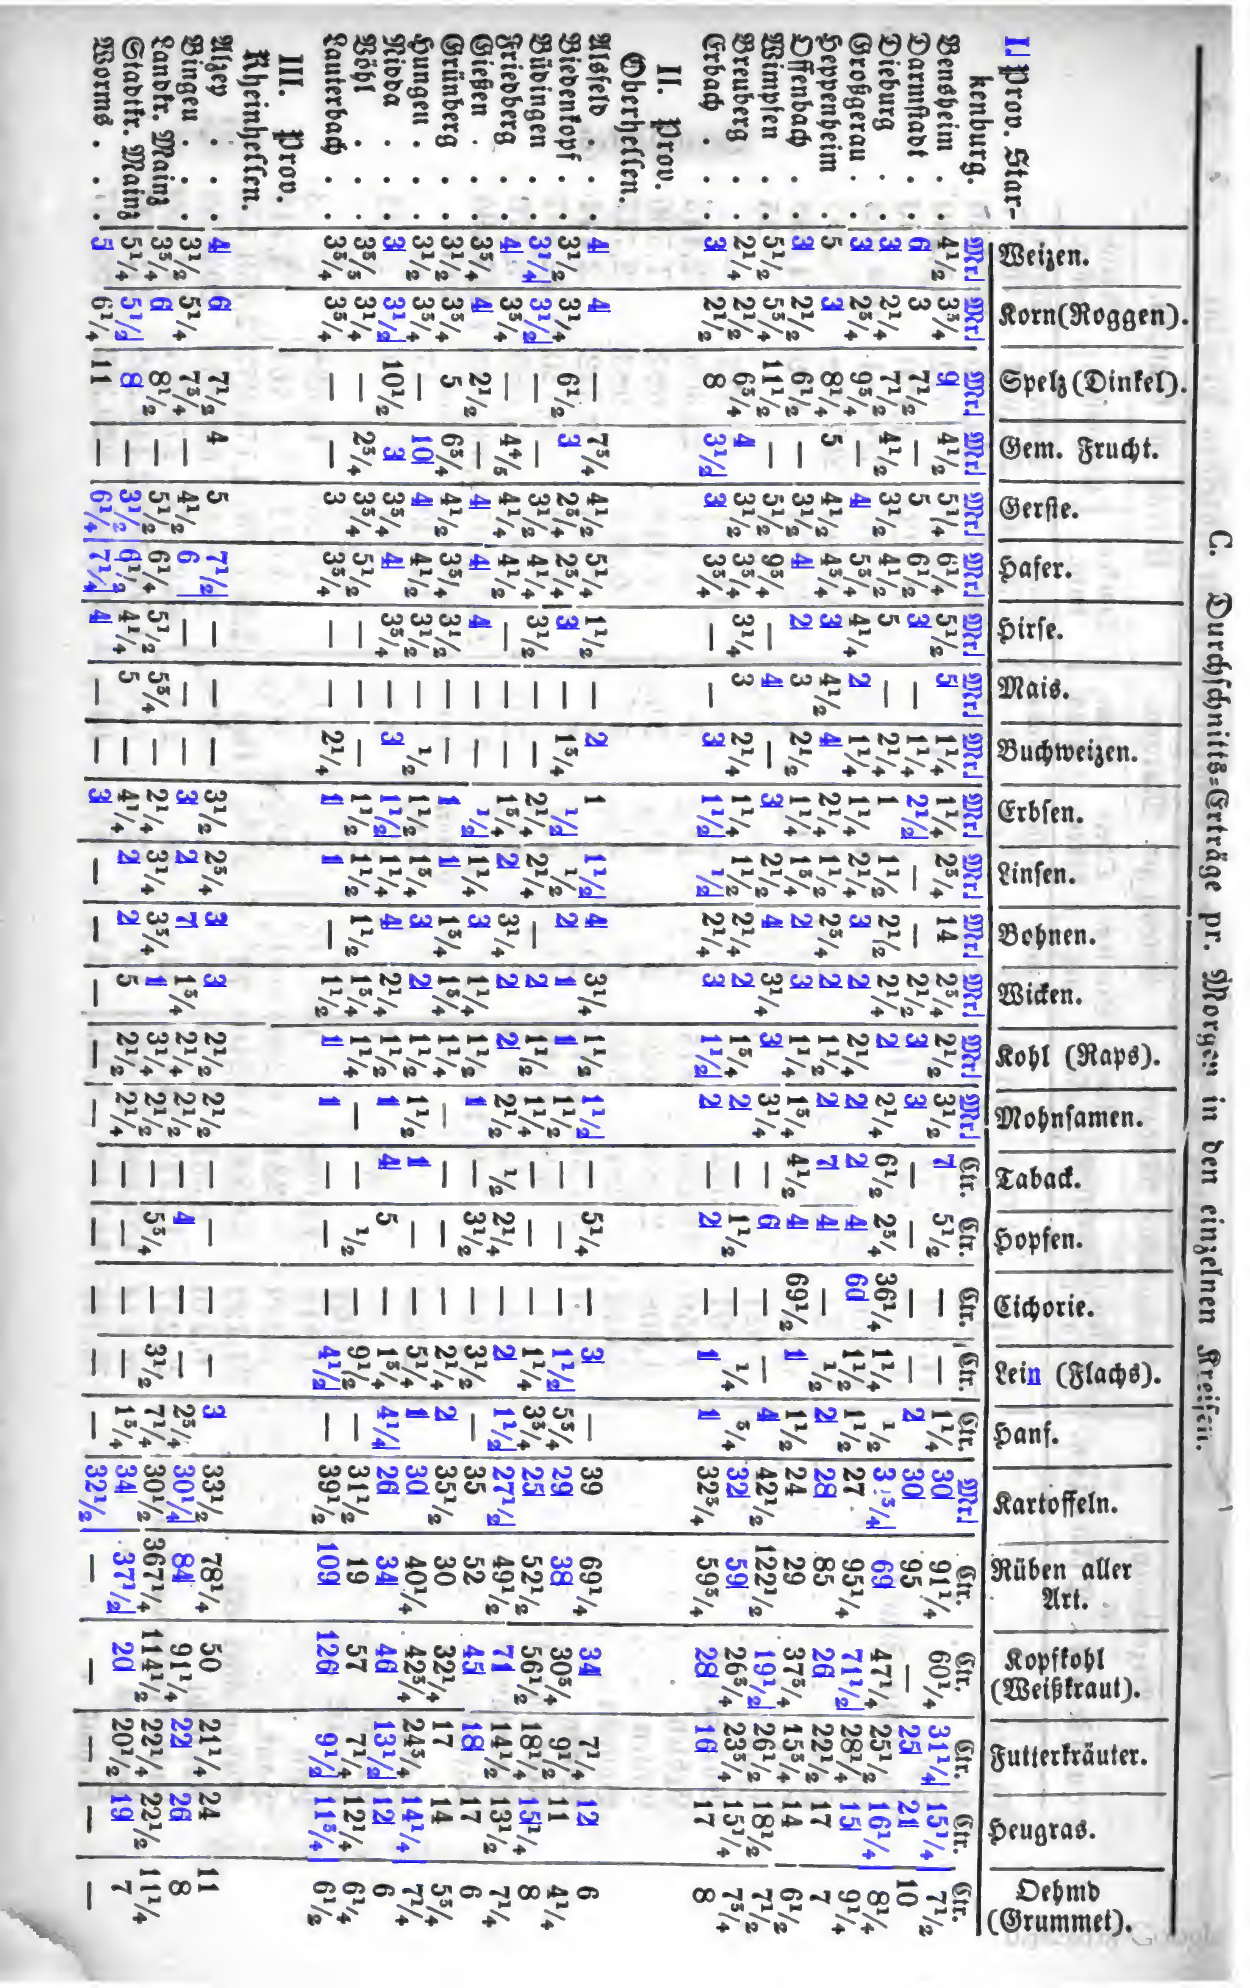 C. Durchschnitts-Erträge pr. Morgen in den einzelnen Kreisen.
Weizen. Korn(Roggen). Spelz(Dinkel). Gem. Frucht. Gerste. Hafer. Hirse. Mais. Buchweizen. Erbsen. Linsen. Bohnen. Wicken. Kohl (Raps). Mohnsamen. Taback. Hopfen. Cichorie. Lein (Flachs). Hanf. Kartoffeln. Rüben aller Art. Kopfkohl (Weißkraut). Futterkräuter. Heugras. Oehmd (Grummet).
I. Prov. Star-
kenburg. Mrl Mrl Mrl Mrl Mrl Mrl Mrl Mrl Mrl Mrl Mrl Mrl Mrl Mrl Mrl Ctr. Ctr. Ctr. Ctr. Ctr. Mrl Ctr. Ctr. Ctr. Ctr. Ctr.
Bensheim . 4½ 3¾ 9 4½ 5¼ 6¼ 5½ 5 1¼ 1¼ 2¾ 14 2¾ 2½ 3½ 7 5½ — — 1¼ 30 91¼ 60¼ 31¼ 15¼ 7½
Darmstadt . 6 3 7½ — 5 6½ 3 — 1¼ 2½ — — 2½ 3 3 — — — — 2 30 95 — 25 21 10
Dieburg . . 3 2¼ 7½ 4½ 3½ 4½ 5 — 2¼ 1 1½ 2½ 2¼ 2 2¼ 6½ 2¾ 36¼ 1¼ ½ 3 ¾ 69 47¼ 25½ 16¼ 8¼
Großgerau . 3 2¾ 9¾ — 4 5¾ 4¼ 2 1¼ 1¼ 2¼ 3 2 2¼ 2 2 4 60 1½ 1½ 27 95¼ 71½ 28¼ 15 9¼
Heppenheim . 5 3 8¼ 5 4½ 4¾ 3 4½ 4 2¼ 1½ 2¾ 2 1½ 2 7 4 — ½ 2 28 85 26 22½ 17 7
Offenbach . 3 2½ 6½ — 3½ 4 2 3 2½ 1¼ 1¾ 2 3 1¼ 1¾ 4½ 4 69½ 1 1½ 24 29 37¾ 15¾ 14 6½
Wimpfen . . 5½ 5¾ 11½ — 5½ 9¾ — 4 — 3 2½ 4 3¼ 3 3¼ — 6 — — 4 42½ 122½ 19½ 26½ 18½ 7½
Breuberg . . 2¼ 2½ 6¾ 4 3½ 3¾ 3¼ 3 2¼ 1¼ 1½ 2¼ 2 1¾ 2 — 1½ — ¼ ¾ 32 59 26¾ 23¾ 15¼ 7¾
Erbach . . . 3 2½ 8 3½ 3 3¾ — — 3 1½ ½ 2¼ 3 1½ 2 — 2 — 1 1 32¾ 59¾ 28 16 17 8
II. Prov.
Oberhessen.
Alsfeld . . . 4 4 — 7¾ 4½ 5¼ 1½ — 2 1 1½ 4 3¼ 1½ 1½ — 5¼ — 3 — 39 69¼ 34 7¼ 12 6
Biedenkopf . . 3½ 3¼ 6½ 3 2¾ 2¾ 3 — 1¾ ½ ½ 2 1 1 1½ — — — 1½ 5¾ 29 38 30¾ 9½ 11 4¼
Büdingen . . 3¼ 3½ — — 3½ 4¼ 3½ — — 2¼ 2¼ — 2 1½ 1¼ — — — 1¼ 3¾ 25 52½ 56½ 18¼ 15¼ 8
Friedberg . . 4 3¾ — 4⅘ 4¼ 4½ — — — 1¾ 2 3¼ 2 2 2½ ½ 2¼ — 2 1½ 27½ 49½ 71 14½ 13½ 7¼
Gießen . . . 3¾ 4 2½ — 4 4 4 — — ½ 1¼ 3 1¼ 1½ 1 — 3½ — 3½ — 35 52 45 18 17 6
Grünberg . . 3½ 3¾ 5 6¾ 4½ 3¾ 3½ — — 1 1 1¾ 1¾ 1¼ — — — — 2¼ 2 35½ 30 32¼ 17 14 5¾
Hungen . . . 3½ 3¾ — 10 4 4½ 3½ — ½ 1½ 1¾ 3 2 1½ 1½ 1 — — 5¼ 1 30 40¼ 42¾ 24¾ 14¼ 7¼
Nidda . . . 3 3½ 10½ 3 3¾ 4 3¾ — 3 1½ 1¼ 4 2¼ 1½ 1 4 5 — 1¾ 4¼ 26 34 46 13½ 12 6
Vöhl . . . 3⅗ 3¼ — 2¾ 3¾ 5½ — — — 1½ 1½ 1½ 1¾ 1¼ — — ½ — 9½ — 31½ 19 57 7¼ 12¼ 6¼
Lauterbach . . 3¾ 3¾ — — 3 3¾ — — 2¼ 1 1 — 1½ 1 1 — — — 4½ — 39½ 109 126 9½ 11¾ 6½
III. Prov.
Rheinhessen.
Alzey . . . 4 6 7½ 4 5 7½ — — — 3½ 2¾ 3 3 2½ 2½ — — — — 3 33½ 78¼ 50 21¼ 24 11
Bingen . . . 3½ 5¼ 7¾ — 4½ 6 — — — 3 2 7 1¾ 2¼ 2½ — 4 — — 2¾ 30¼ 84 91¼ 22 26 8
Landkr. Mainz 3¾ 6 8½ — 5½ 6¼ 5½ 5¾ — 2¼ 3¼ 3¾ 1 3¼ 2½ — 5¾ — 3½ 7¼ 30½ 367¼ 114½ 22¼ 22½ 11¼
Stadtkr. Mainz 5¼ 5½ 8 — 3½ 6½ 4¼ 5 — 4¼ 2 2 5 2½ 2¼ — — — — 1¾ 34 37½ 20 20½ 19 7
Worms . . . 5 6¼ 11 — 6¼ 7¼ 4 — — 3 — — — — — — — — — — 32½ — — — — —